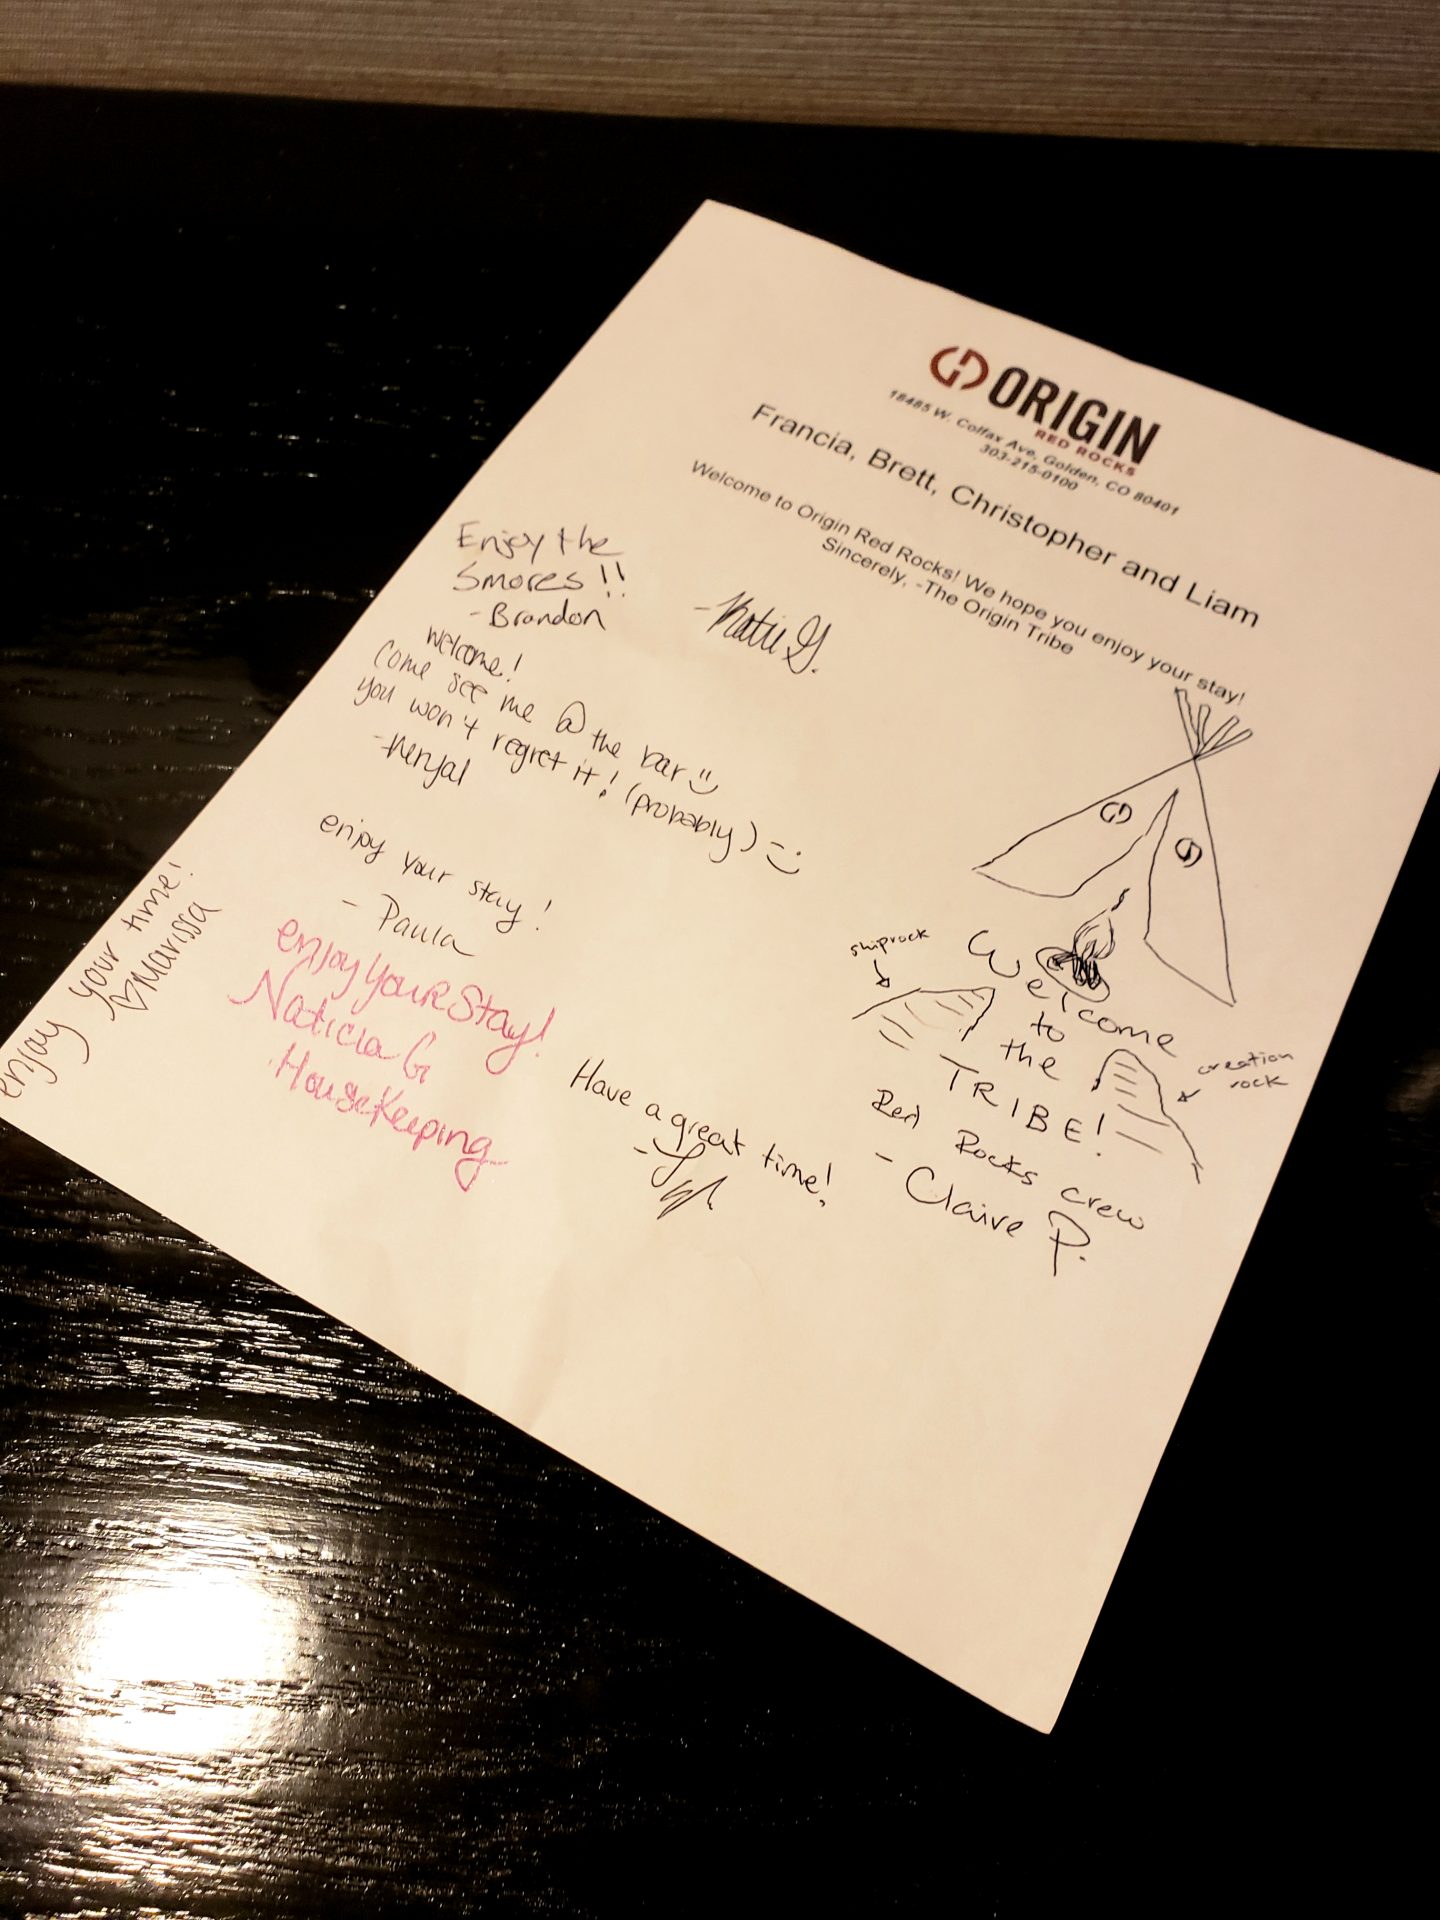 ORIGIN
RED ROCKS
18485 W. Colfax Ave, Golden, CO 80401
303-215-0100
Francia, Brett, Christopher and Liam
Welcome to Origin Red Rocks! We hope you enjoy your stay!
Sincerely, -The Origin Tribe
Enjoy the
Smores!!
- Brandon
- Katie G.
Welcome!
Come see me @ the bar
you won't regret it! (probably)
enjoy your stay!
- Paula
enjoy your time!
♡Marissa
enjoy Your Stay!
Naticia G
HouseKeeping
Have a great time!
shiprock
Welcome
to
the
TRIBE!
creation
rock
Red Rocks crew
- Claire P.